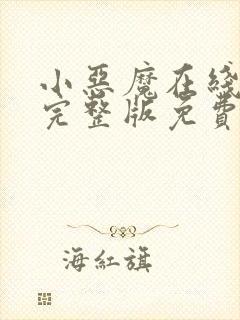 小惡魔在綫
完整版免費
海紅旗